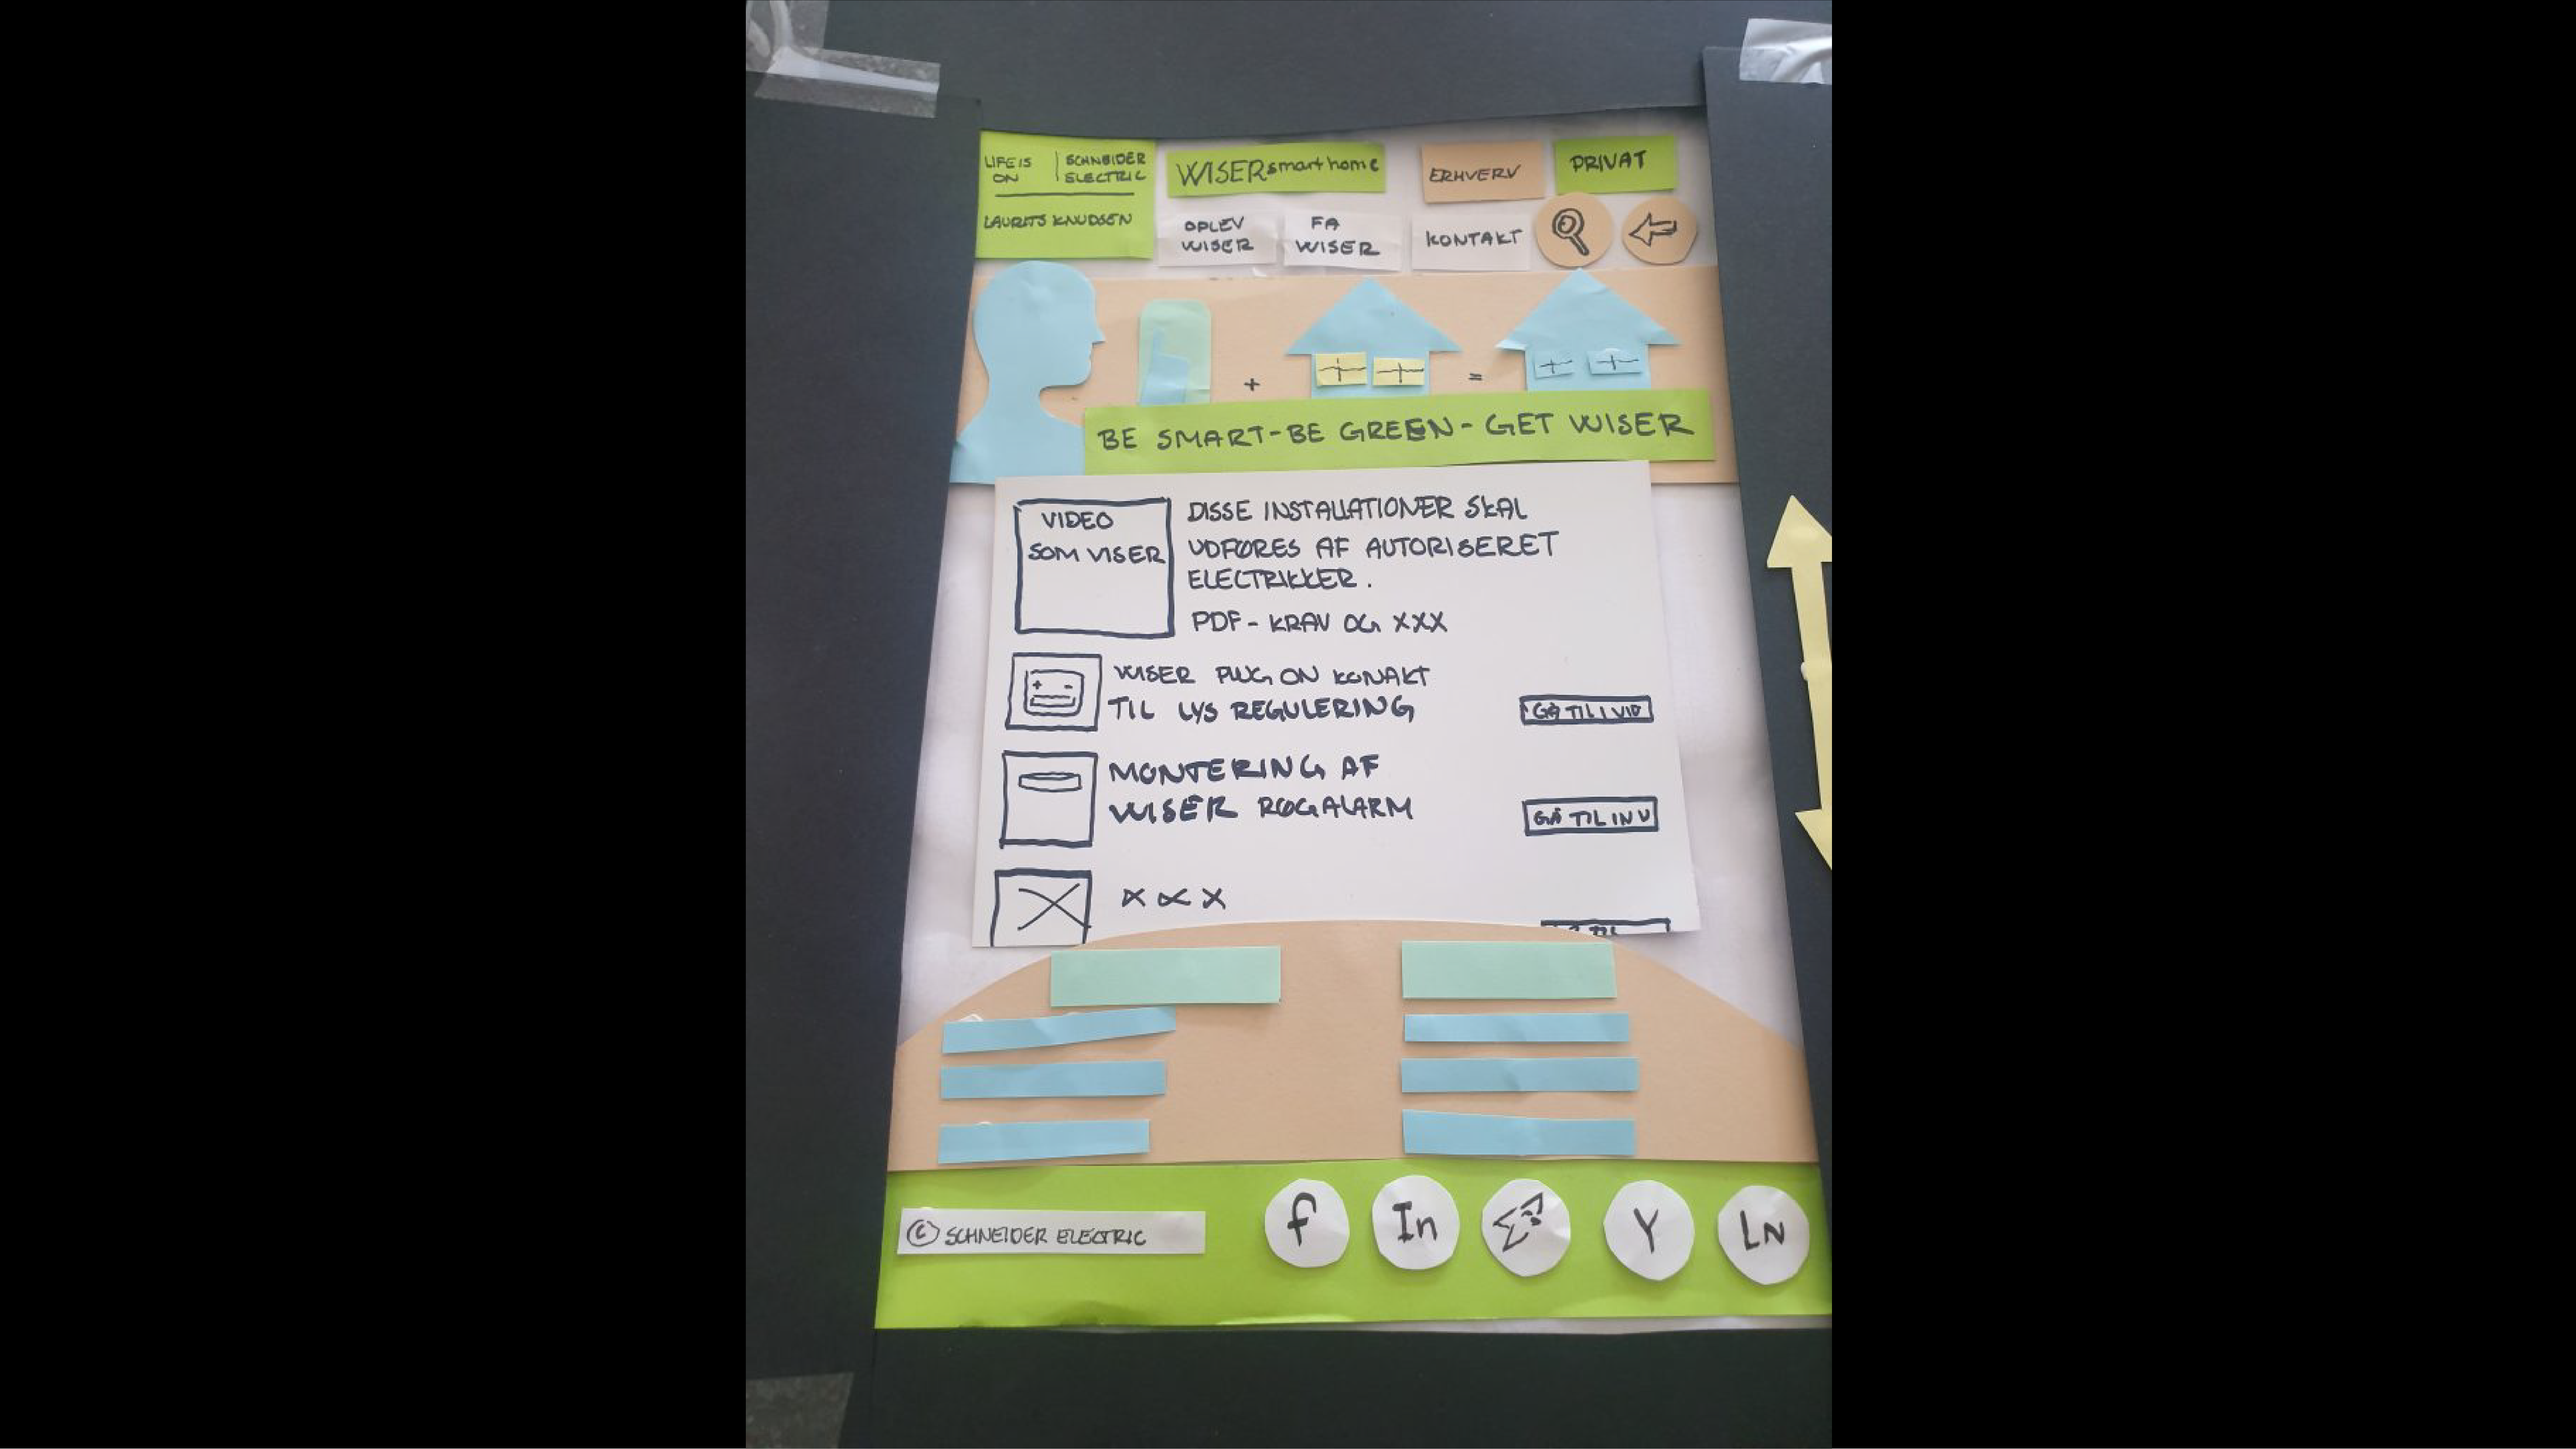 LIFE IS ON | SCHNEIDER ELECTRIC
LAURITS KNUDSEN
WISER smart home
ERHVERV
PRIVAT
OPLEV
WISER
FA
WISER
KONTAKT
+
=
BE SMART-BE GREEN-GET WISER
VIDEO
SOM VISER
DISSE INSTALLATIONER SKAL
UDFØRES AF AUTORISERET
ELECTRIKKER.
PDF - KRAV OG XXX
+ -
WISER PLUG ON KONAKT
TIL LYS REGULERING
GÅ TIL I VID
MONTERING AF
WISER RØGALARM
GÅ TIL IN V
X X X
© SCHNEIDER ELECTRIC
f
In
Y
LN